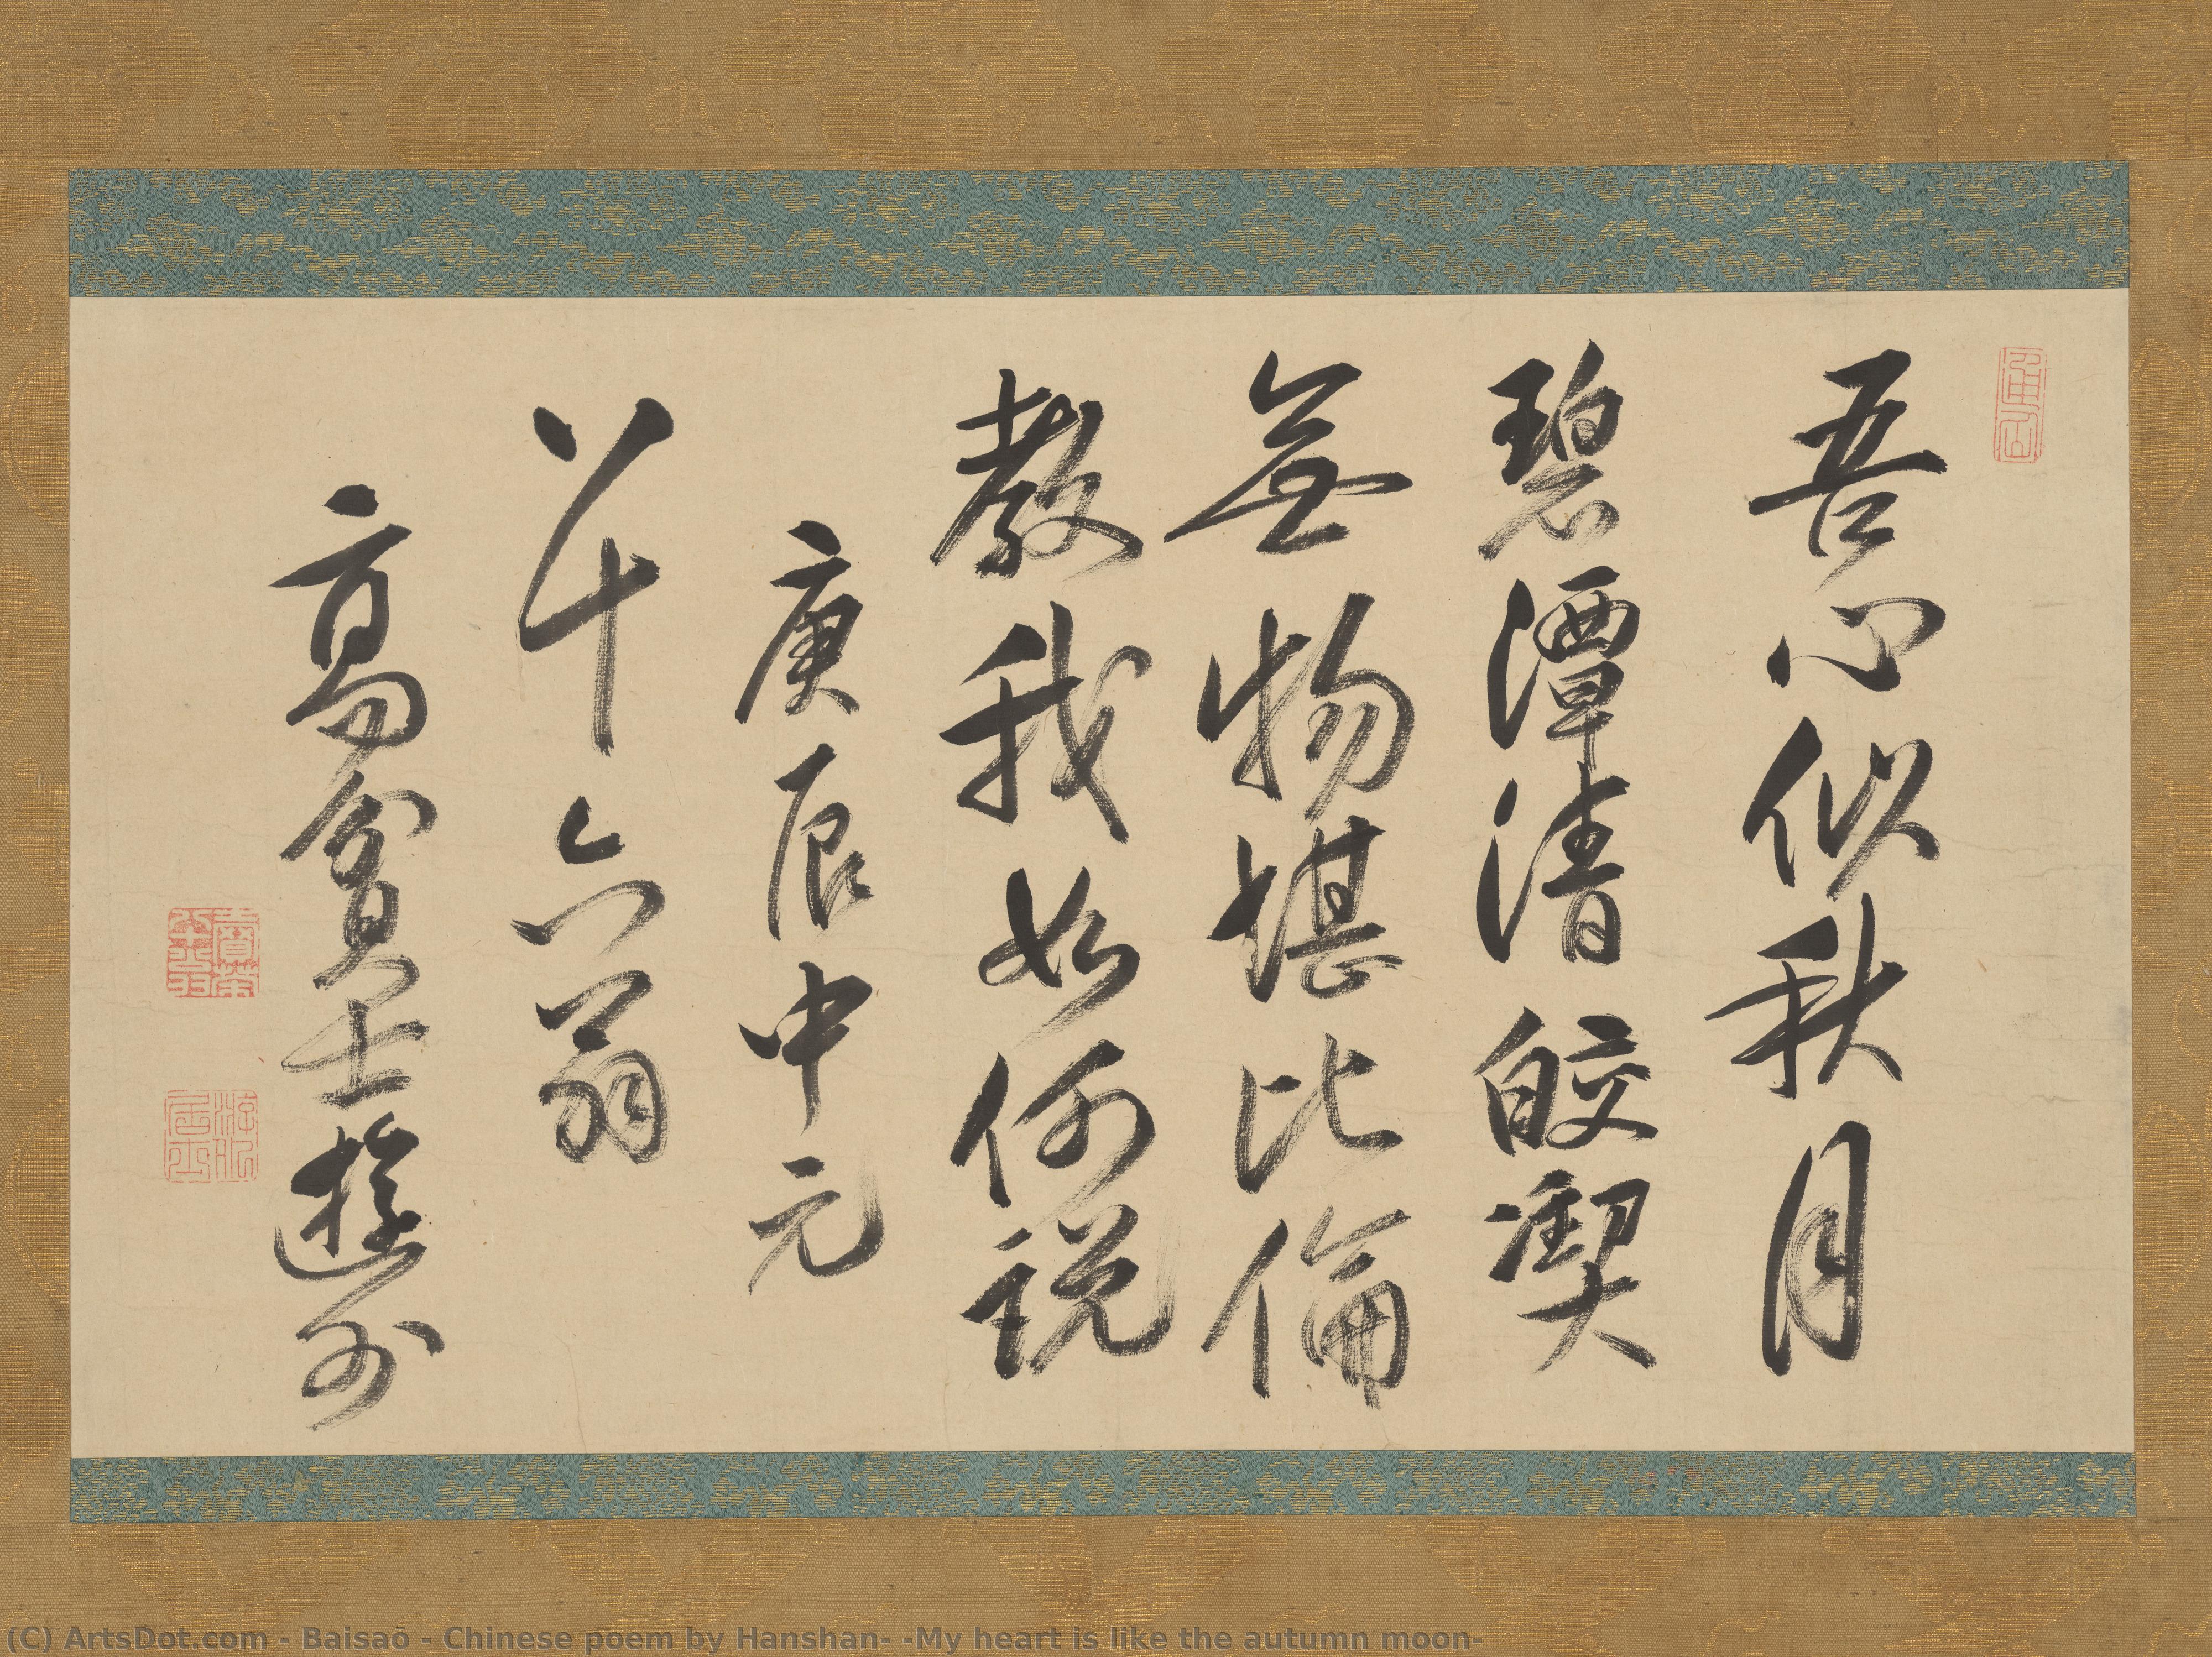 吾心似秋月
碧潭清皎潔
無物堪比倫
教我如何說
庚辰中元
八十六翁
高翁居士遊外
(C) ArtsDot.com - Baisaō - Chinese poem by Hanshan- -My heart is like the autumn moon-